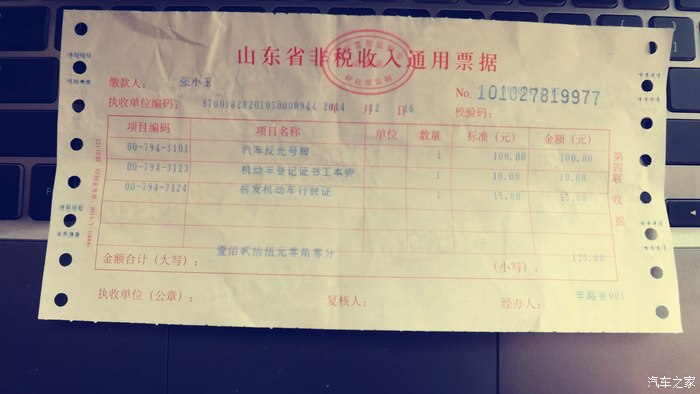 山东省非税收入通用票据
缴款人： 张小玉
No. 101027819977
执收单位编码： 校验码：
项目编码 项目名称 单位 数量 标准（元） 金额（元）
00-794-3101 汽车反光号牌 1 100.00 100.00
00-794-3123 机动车登记证书工本费 1 10.00 10.00
00-794-3124 核发机动车行驶证 1 15.00 15.00
金额合计（大写）： 壹佰贰拾伍元零角零分 （小写）： 125.00
执收单位（公章）： 复核人： 经办人： 001
第四联 收据
汽车之家